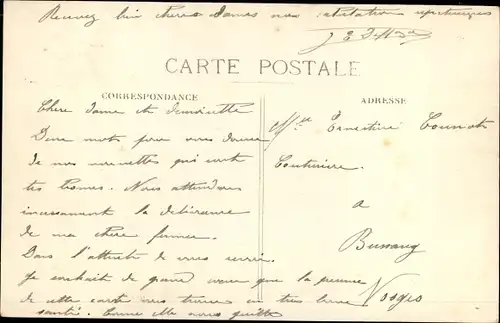 Recevez bien chères Dames nos
CARTE POSTALE
CORRESPONDANCE
Chère dame et demoiselle
Deux mots pour vous donner
de nos nouvelles qui sont
très bonnes. Nous attendons
incessamment la délivrance
de ma chère femme.
Dans l'attente de vous
Je souhait de grand que la
de cette carte vous trouve en très bonne
santé.
ADRESSE
Mlle Ernestine
Couturière
a
Bussang
Vosges